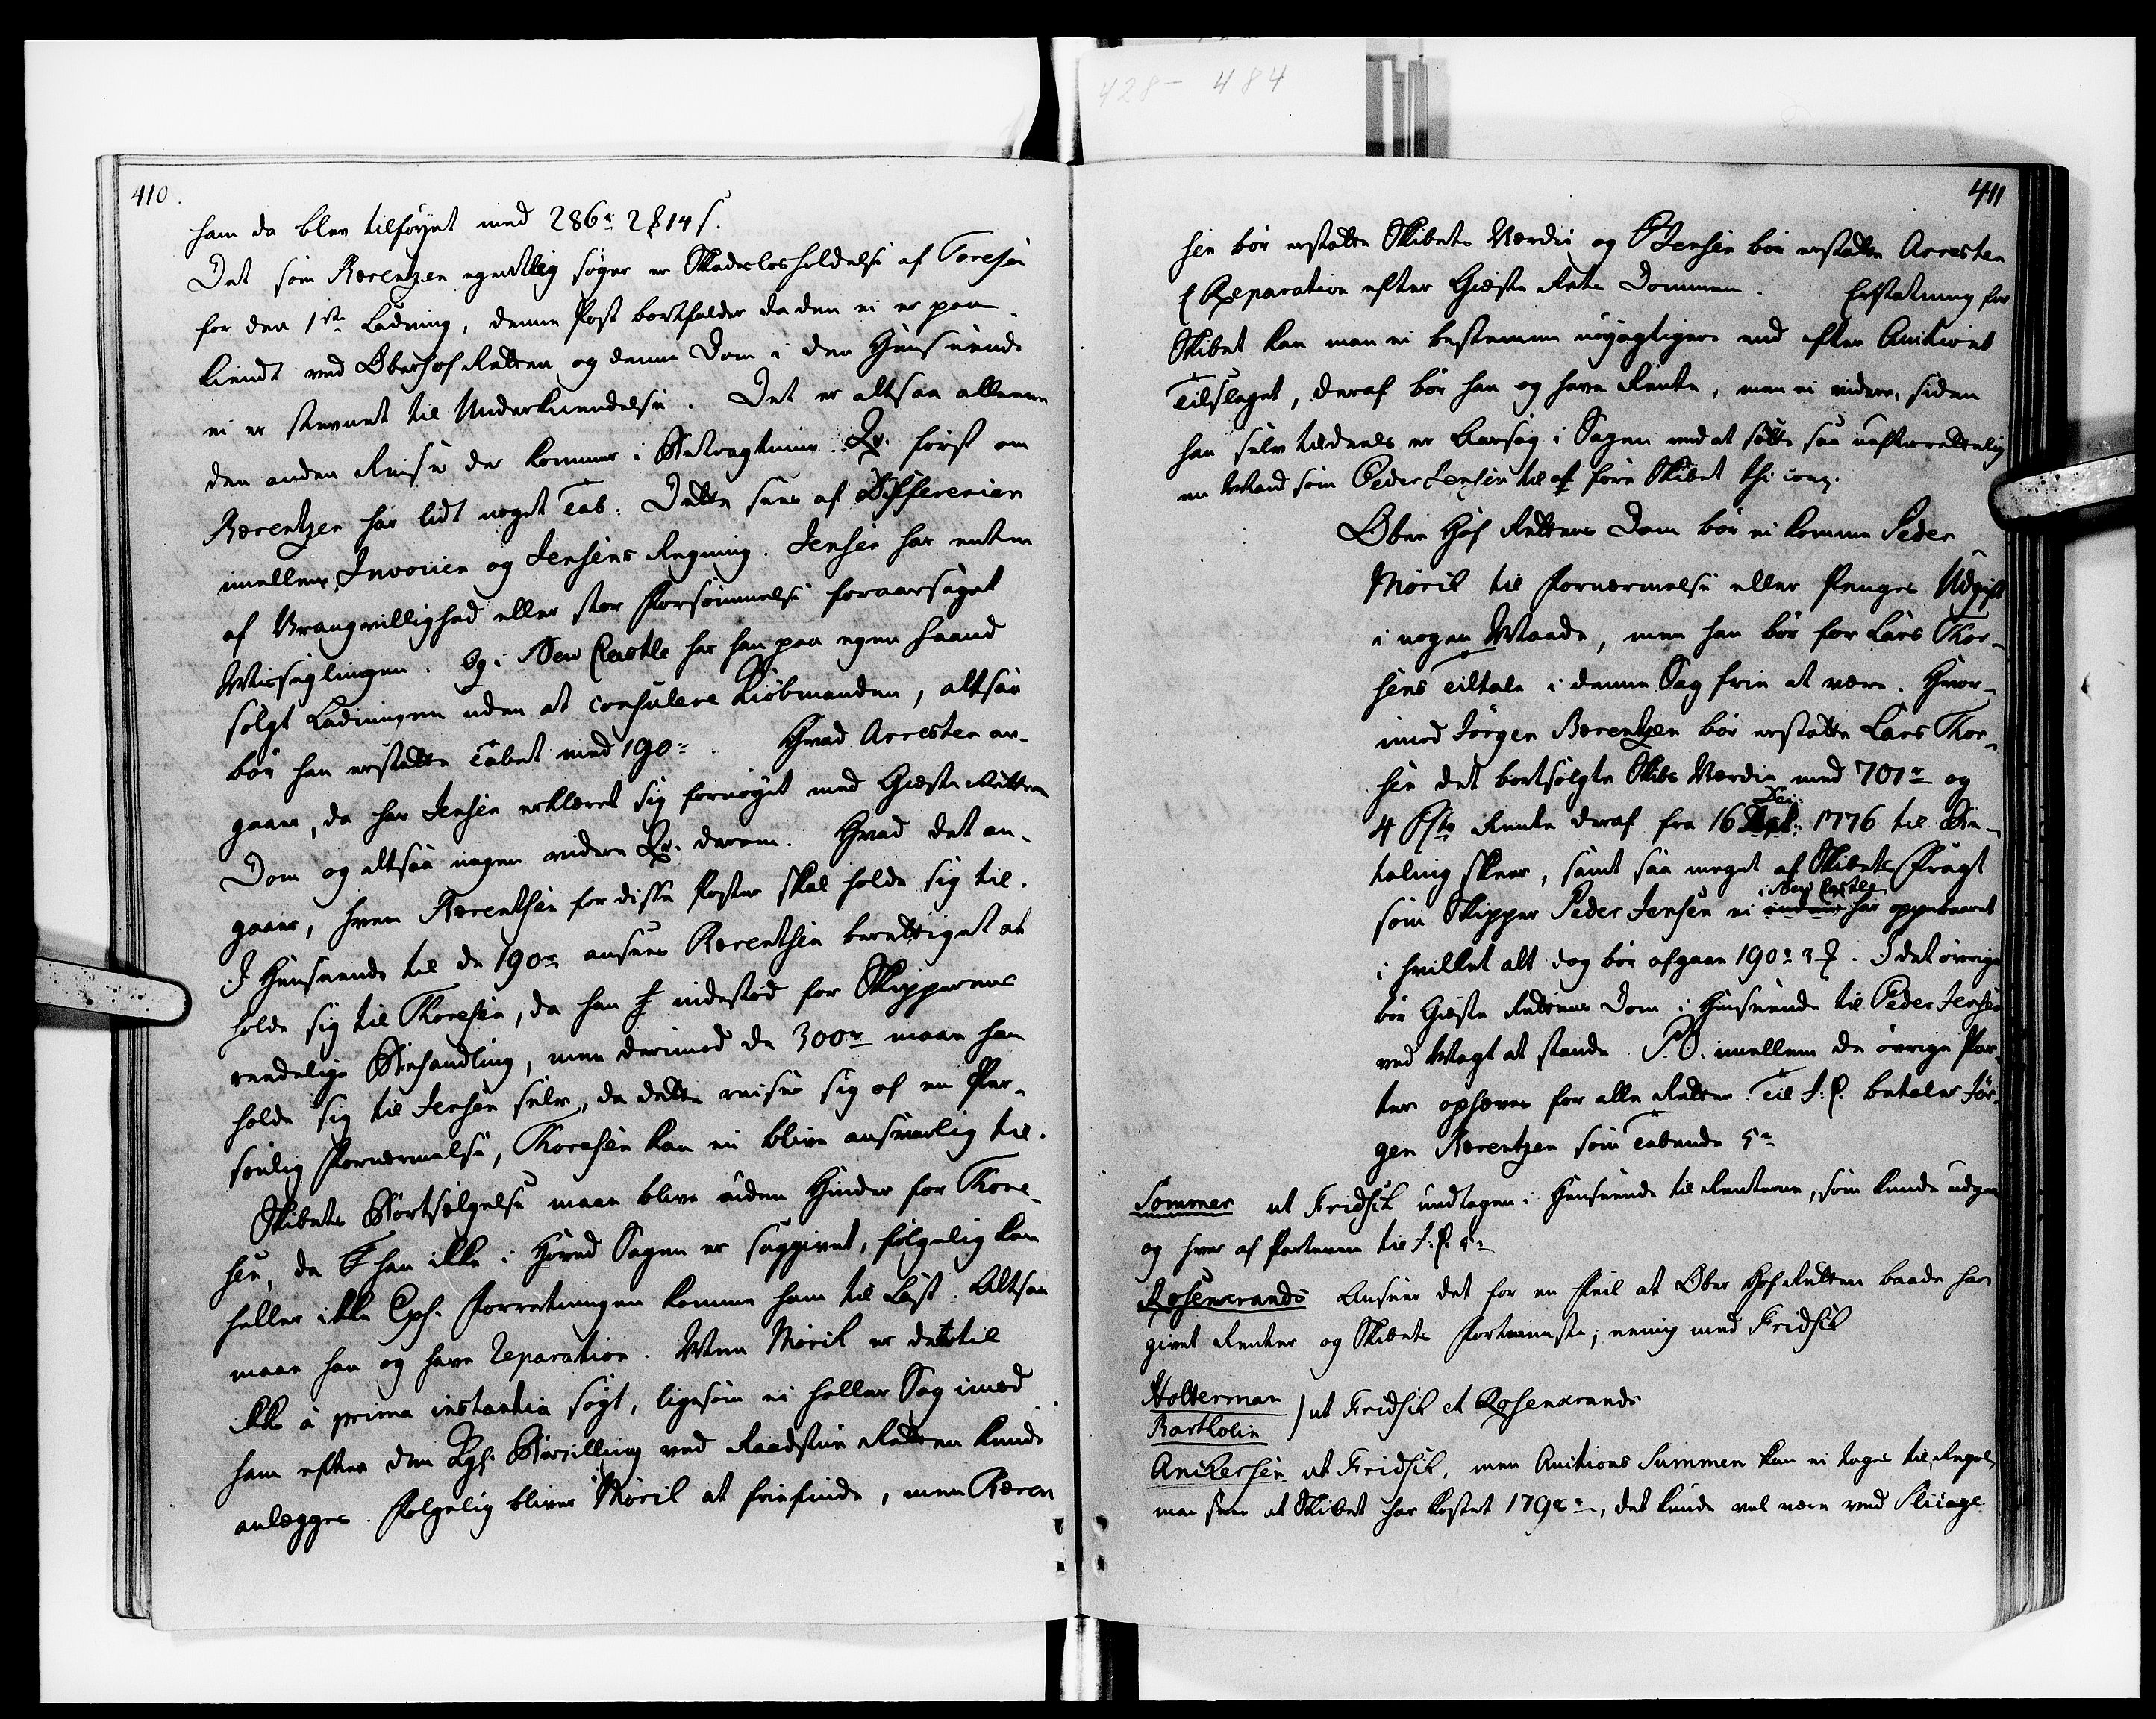 428 - 484
410.
ham da blev tilføyet med 286 r 2 ƒ 14 s.
Det som Berentzen egentlig søger er Skadesløsholdelse af Toresen
for den 1ste Ladning, denne Post bortfalder da den ei er paa
kiendt ved Oberhof Retten og denne Dom i den Henseende
ei er stevnet til Underkiendelse. Det er altsaa alleene
den anden Reise der kommer i Betragtning. Qv. først om
Berentzen har lidt noget Tab: Dette sees af Differencen
imellem Invoicen og Jensens Regning. Jensen har enten
af Vrangvillighed eller stor Forsømmelse foraarsaget
Misseglingen. Og i New Castle har han paa egen Haand
solgt Ladningen uden at consulere Kiøbmanden, altsaa
bør han erstatte Tabet med 190 r. Hvad Arresten an-
gaaer, da har Jensen erklæret sig fornøyet med Gieste Rettens
Dom og altsaa ingen videre Qv. derom. Hvad det an-
gaaer, hvem Berenthsen for disse Poster skal holde sig til.
I Henseende til de 190 r ansees Berenthsen berettiget at
holde sig til Thoresen, da han indestod for Skipperens
reedelige Behandling, men derimod de 300 r maae han
holde sig til Jensen selv, da dette reiser sig af en Per-
sonlig Fornermelse, Thoresen kan ei blive ansvarlig til.
Skibets Bortsælgelse maae blive uden Hinder for Thore-
sen, da han ikke i Hoved Sagen er saggivet, følgelig kan
heller ikke Exp. Forretningen komme ham til Last. Altsaa
maae han og have Reparation. Men Morik er dertil
ikke a prima instantia søgt, ligesom ei heller Sag imod
ham efter den Kgl. Bevilling ved Raadstue Retten kunde
anlegges. Følgelig bliver Morik at friefinde, men Beren
411
sen bør erstatte Skibets Værdie og P Jensen bør erstatte Arresten
(Reparation efter Gieste Rets Dommen. Erstatning for
Skibet kan man ei bestemme nøyagtigere end efter Auctions
Tilslaget, deraf bør han og have Rente, men ei videre, siden
han selv tildeels er Aarsag i Sagen ved at sætte saa uefterrettelig
en Mand som Peder Jensen til at føre Skibet thi conz.
Ober Hof Rettens Dom bør ei komme Peder
Morik til Fornærmelse eller Penges Udgift
i nogen Maade, men han bør for Lars Thor-
sens Tiltale i denne Sag frie at være. Hvor-
imod Jørgen Berentzen bør erstatte Lars Thor-
sen det bortsolgte Skibs Værdie med 701 r og
4 Pcto Rente deraf fra 16 Dec: 1776 til Be-
taling skeer, samt saa meget af Skibets Fragt
som Skipper Peder Jensen ei i New Castle har oppebaaret
i hvilket alt dog bør afgaae 190 r 3 ƒ. I det øvrige
bør Gieste Rettens Dom i Henseende til Peder Jensen
ved Magt at stande. P. O. imellem de øvrige Par-
ter ophæves for alle Retter. Til J. C. betaler Jør-
gen Berentzen som Tabende 5 r
Sommer ut Fridsch undtagen i Henseende til Renterne, som kunde udgaae
og hver af Parterne til J. C. 5 r
Rosencrands Anseer det for en Feil at Ober Hof Retten baade har
givet Renter og Skibets Fortieneste; eenig med Fridsch
Holterman
Bartholin ) ut Fridsch et Rosencrands
Anchersen ut Fridsch, men Auctions Summen kan ei tages til Regel,
man seer at Skibet har kostet 1794 r, det kunde vel være ved Sliiage